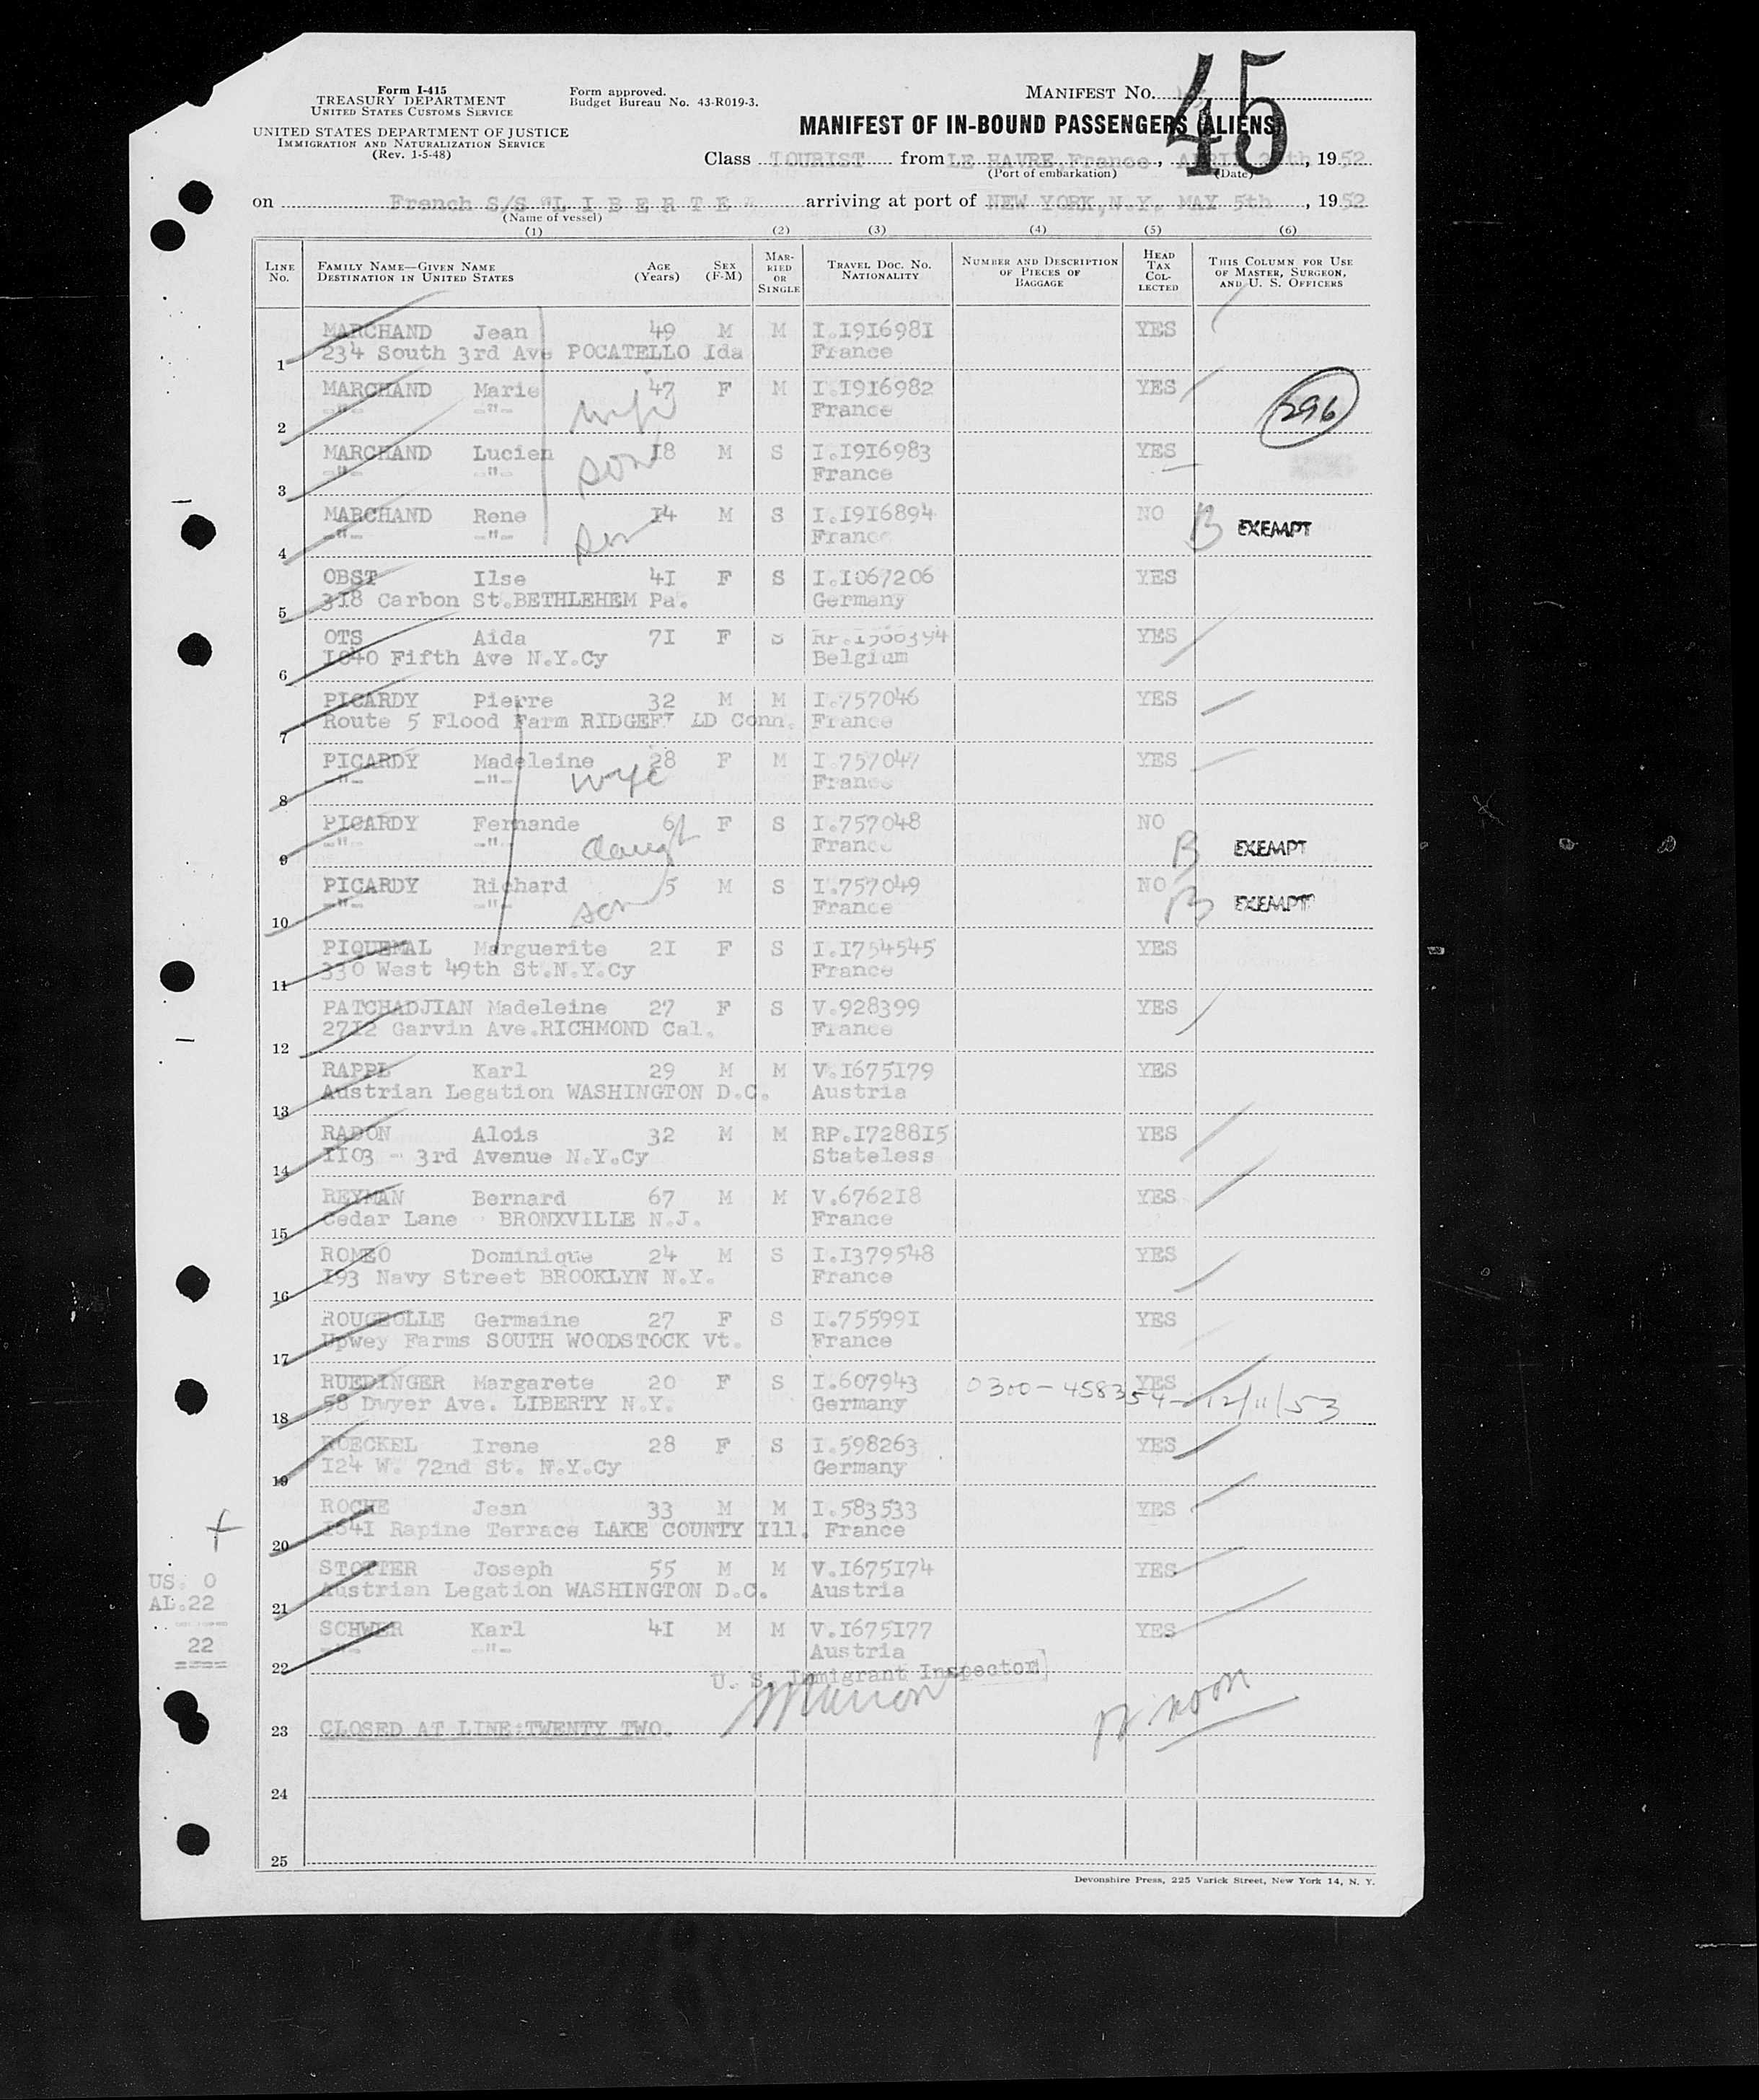 Form I-415
TREASURY DEPARTMENT
UNITED STATES CUSTOMS SERVICE
UNITED STATES DEPARTMENT OF JUSTICE
IMMIGRATION AND NATURALIZATION SERVICE
(Rev. 1-5-48)
Form approved.
Budget Bureau No. 43-R019-3.
MANIFEST NO.
45
MANIFEST OF IN-BOUND PASSENGERS (ALIENS)
Class TOURIST from LE HAVRE, France, APRIL th, 1952
(Port of embarkation) (Date)
on French S/S "L I B E R T E" arriving at port of NEW YORK, N.Y. MAY 5th, 1952
(Name of vessel)
(1) (2) (3) (4) (5) (6)
LINE No. FAMILY NAME—GIVEN NAME DESTINATION IN UNITED STATES AGE (Years) SEX (F-M) MARRIED OR SINGLE TRAVEL DOC. NO. NATIONALITY NUMBER AND DESCRIPTION OF PIECES OF BAGGAGE HEAD TAX COLLECTED THIS COLUMN FOR USE OF MASTER, SURGEON, AND U. S. OFFICERS
MARCHAND Jean 49 M M I.I9I698I YES
1 234 South 3rd Ave POCATELLO Ida France
MARCHAND Marie 47 F M I.I9I6982 YES
2 -"- -"- wife France 296
MARCHAND Lucien I8 M S I.I9I6983 YES
3 -"- -"- son France
MARCHAND Rene I4 M S I.I9I6894 NO B EXEMPT
4 -"- -"- son France
OBST Ilse 4I F S I.I067206 YES
5 3I8 Carbon St.BETHLEHEM Pa. Germany
OTS Aida 7I F S RP.I566394 YES
6 I040 Fifth Ave N.Y.Cy Belgium
PICARDY Pierre 32 M M I.757046 YES
7 Route 5 Flood Farm RIDGEF LD Conn. France
PICARDY Madeleine 28 F M I.757047 YES
8 -"- -"- wife France
PICARDY Fernande 6 F S I.757048 NO
9 -"- -"- daugt France B EXEMPT
PICARDY Richard 5 M S I.757049 NO
10 -"- -"- son France B EXEMPT
PIQUEMAL Marguerite 2I F S I.I754545 YES
11 330 West 49th St.N.Y.Cy France
PATCHADJIAN Madeleine 27 F S V.928399 YES
12 27I2 Garvin Ave.RICHMOND Cal. France
RAPPL Karl 29 M M V.I675I79 YES
13 Austrian Legation WASHINGTON D.C. Austria
RADON Alois 32 M M RP.I7288I5 YES
14 II03 - 3rd Avenue N.Y.Cy Stateless
REYMAN Bernard 67 M M V.6762I8 YES
15 Cedar Lane BRONXVILLE N.J. France
ROMEO Dominique 24 M S I.I379548 YES
16 I93 Navy Street BROOKLYN N.Y. France
ROUGEOLLE Germaine 27 F S I.75599I YES
17 Upwey Farms SOUTH WOODSTOCK Vt. France
RUEDINGER Margarete 20 F S I.607943 0300-458354- YES 12/11/53
18 58 Dwyer Ave. LIBERTY N.Y. Germany
ROECKEL Irene 28 F S I.598263 YES
19 I24 W. 72nd St. N.Y.Cy Germany
ROCHE Jean 33 M M I.583533 YES
20 I54I Rapine Terrace LAKE COUNTY Ill. France
STOTTER Joseph 55 M M V.I675I74 YES
21 Austrian Legation WASHINGTON D.C. Austria
SCHWER Karl 4I M M V.I675I77 YES
22 -"- -"- Austria
US. 0
AL.22
22
U. S. Immigrant Inspector
12 noon
23 CLOSED AT LINE:TWENTY TWO.
24
25
Devonshire Press, 225 Varick Street, New York 14, N. Y.